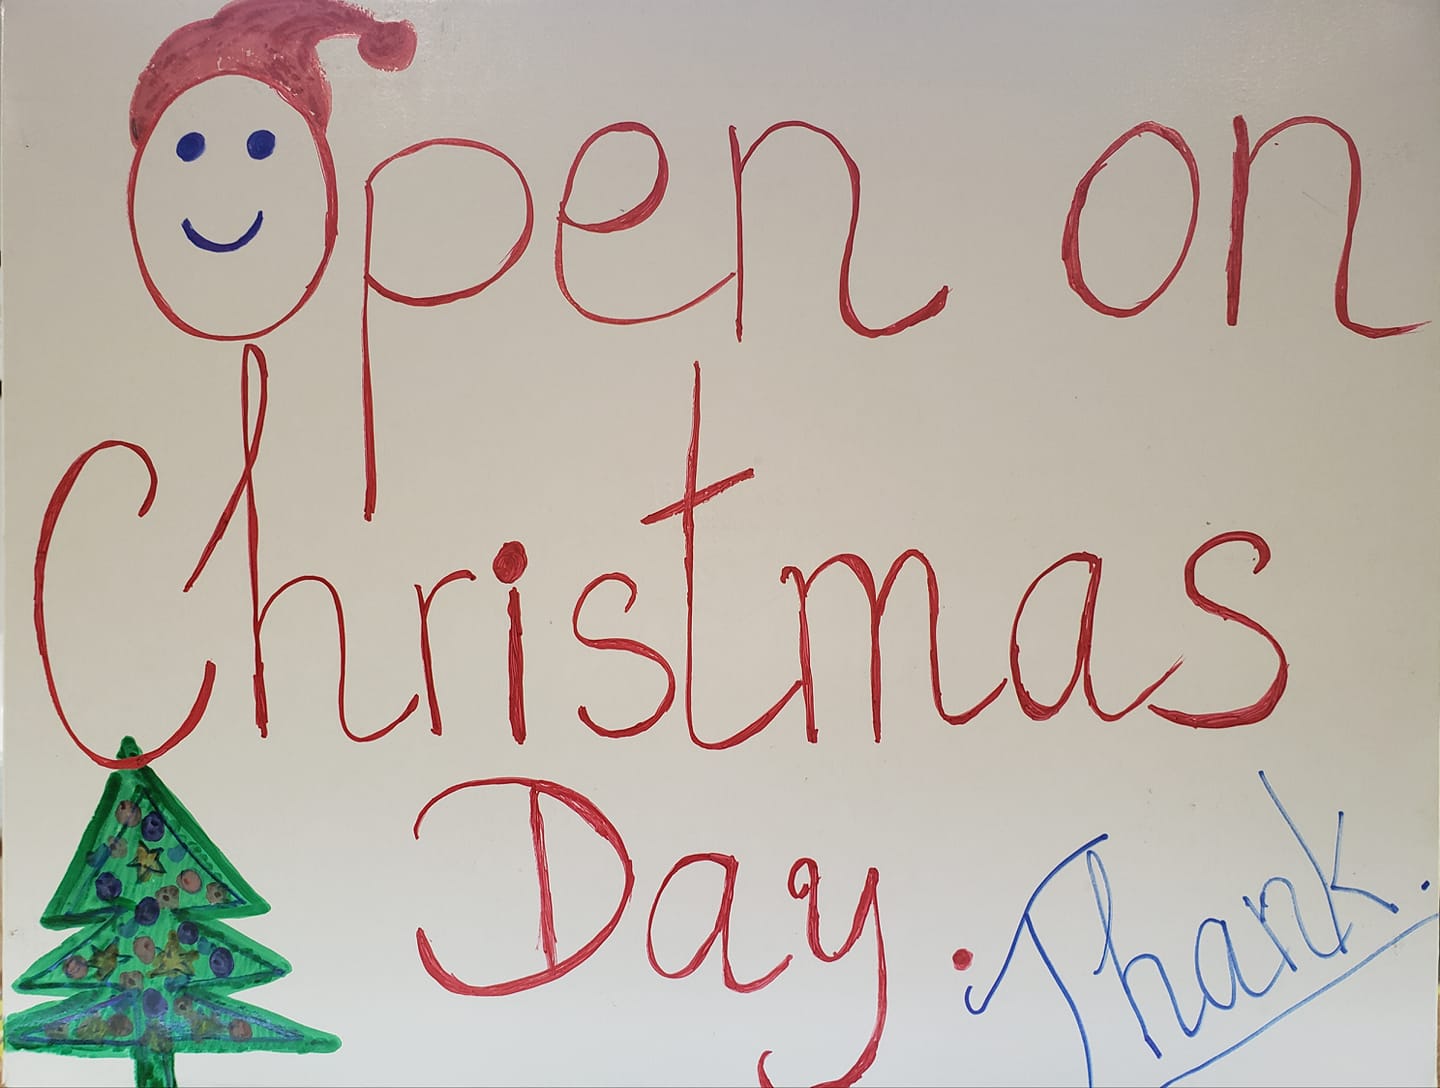 Open on
Christmas
Day.
Thank.